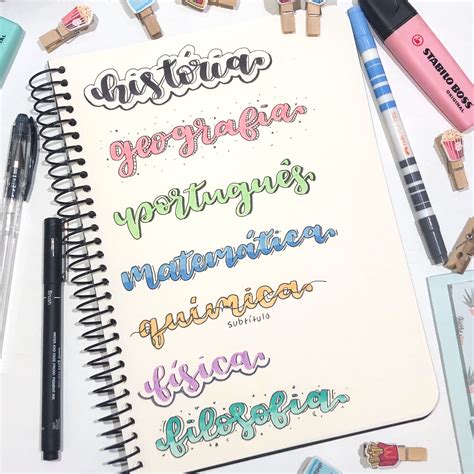 história
geografia
português
matemática
química
subtítulo
física
filosofia
STABILO BOSS
ORIGINAL
Brush